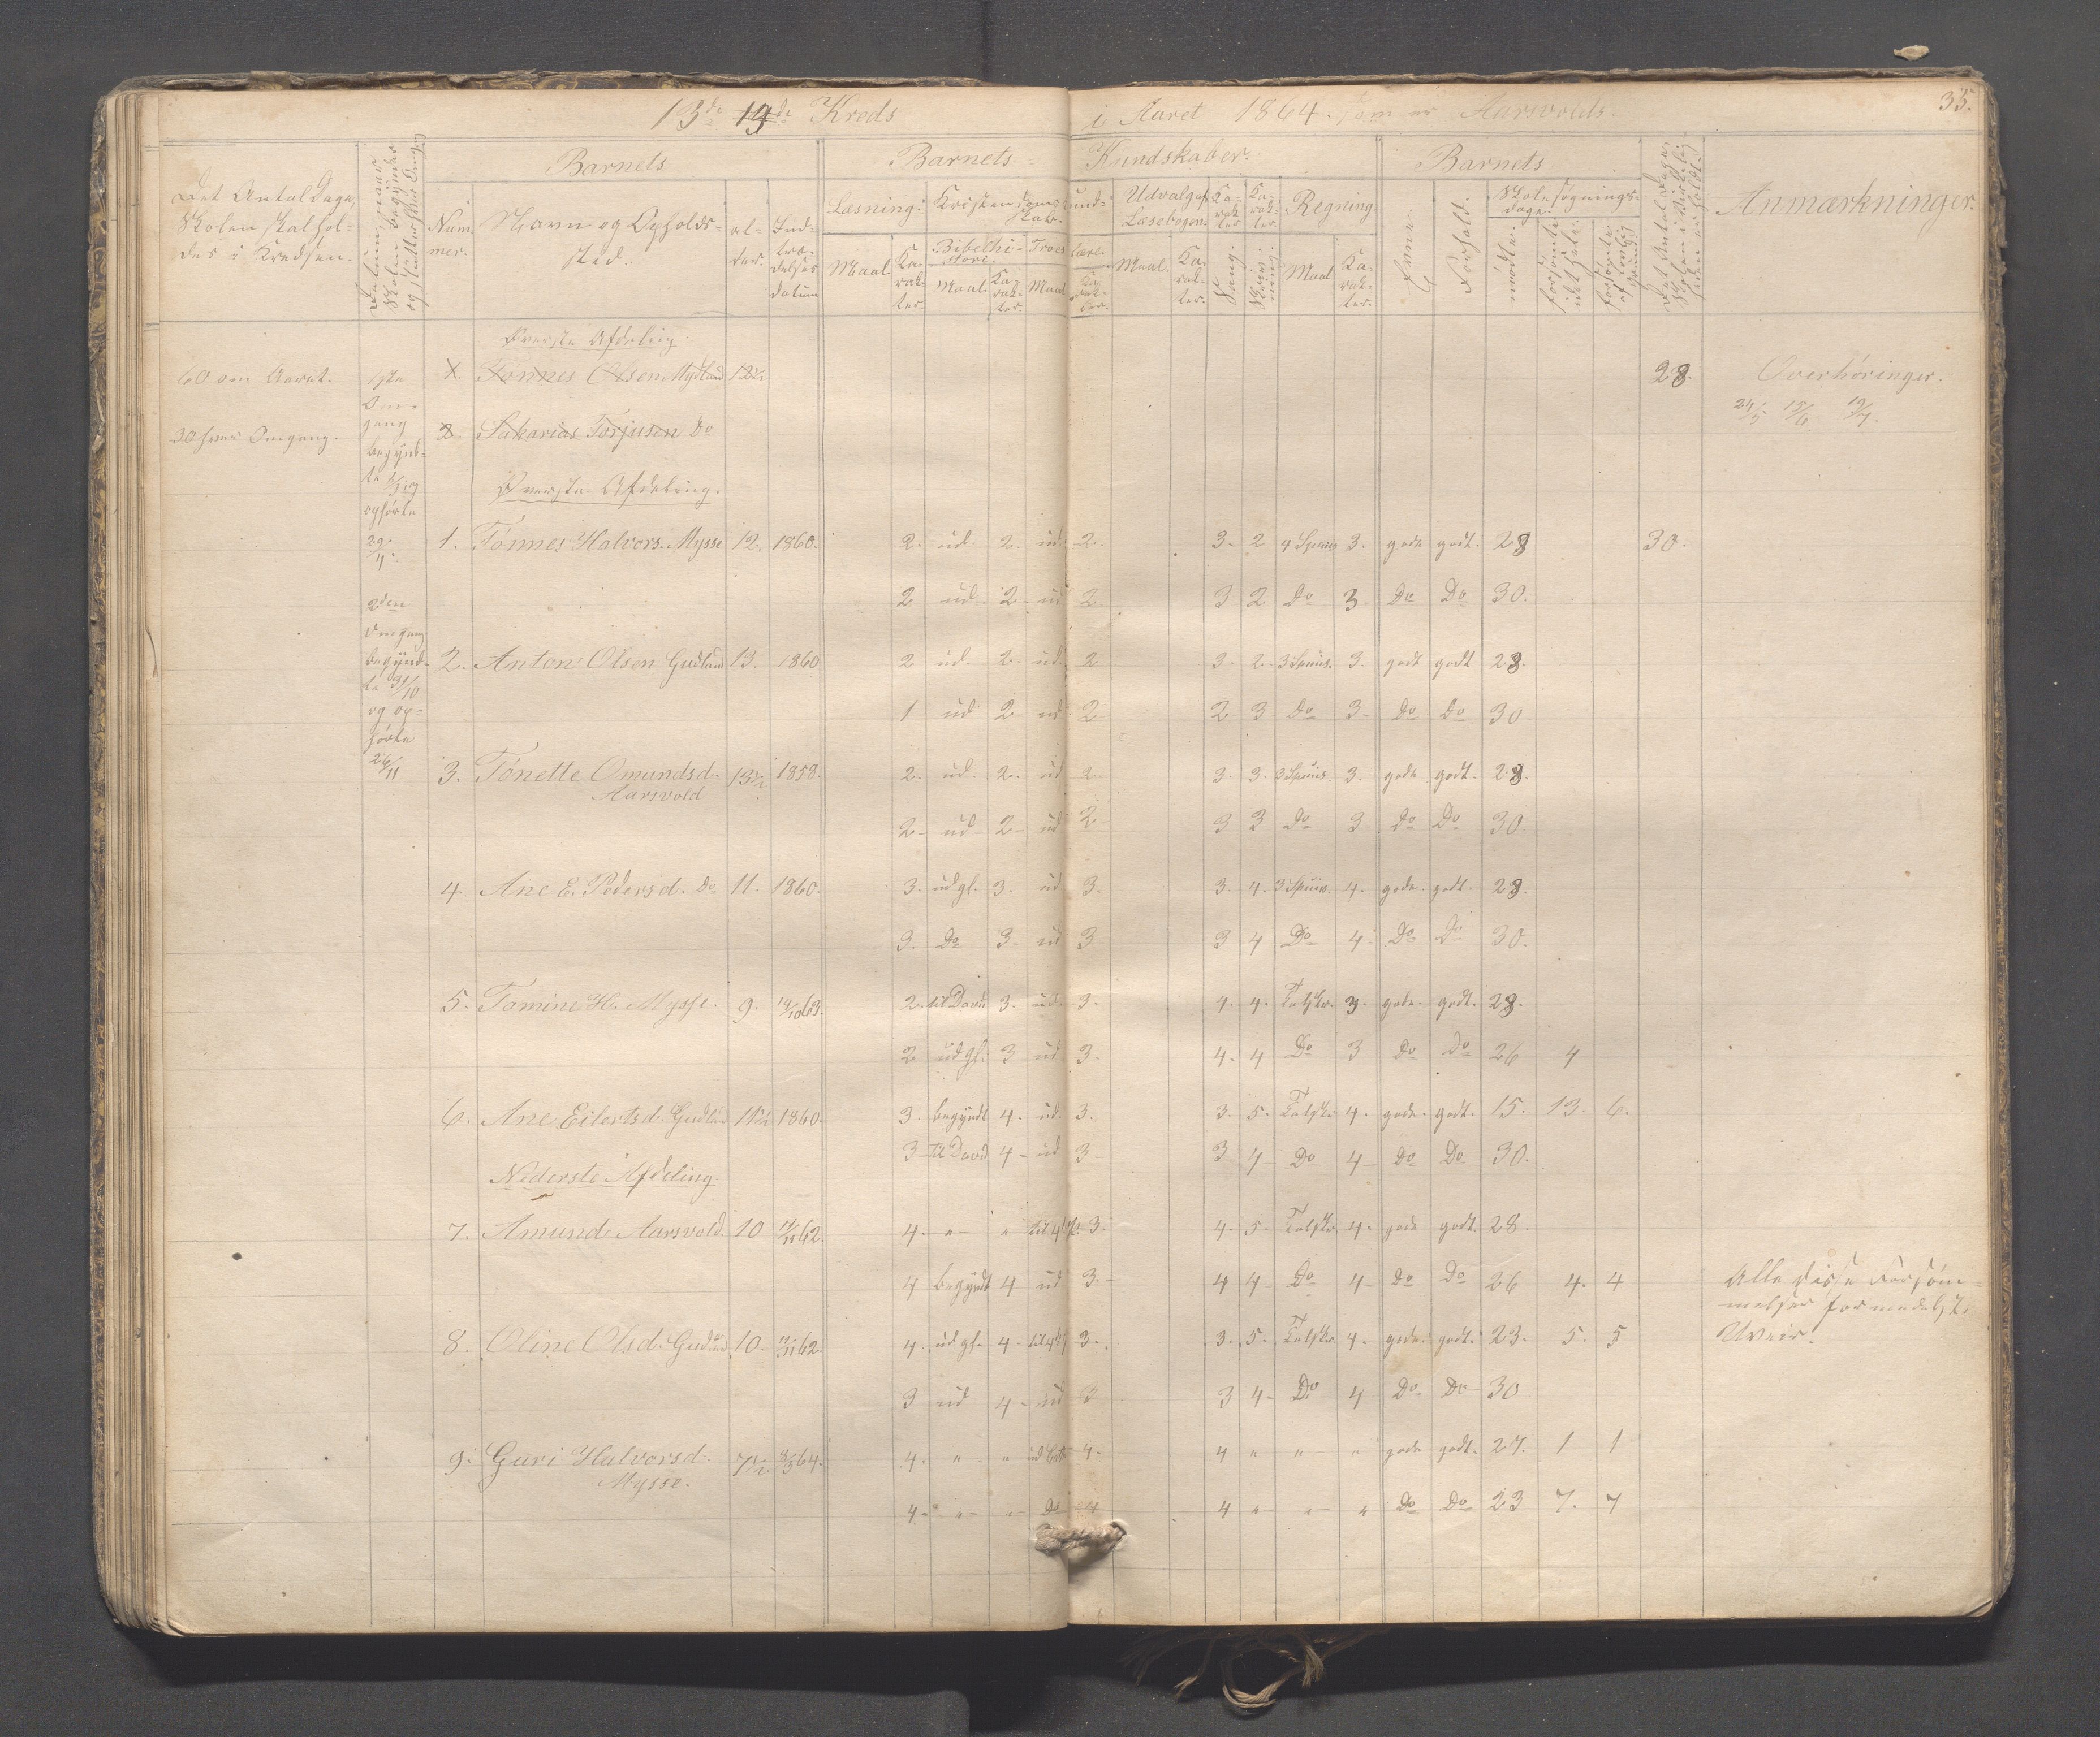 13de 14de Kreds i Aaret 1864. som er Aarsvolds. 35.
Det Antal Dage Skolen skal holdes i Kredsen.
Datum, naar Skolen begynder og slutter hver Omgang
Barnets
Nummer.
Navn og Opholdssted.
al-der.
Indtrædelses datum
Barnets Kundskaber.
Læsning.
Maal.
Karakter.
Kristendomskundskab.
Bibelhistori.
Maal. Karakter.
Troeslære.
Maal Karakter.
Udvalg af Læsebogen.
Maal. Karakter.
Karakter Sang.
Karakter Skrivning.
Regning.
Maal Karakter.
Barnets
Evne.
Forhold.
Skolesøgningsdage.
mødte.
forsømte i det Hele.
forsømte af lovlig Grund.
Det Antal Dage Skolen i Virkeligheden er holdt.
Anmærkninger.
Øverste Afdeling.
60 om Aaret. 1ste 1. Tønnes Olsen Mydland 12½ 28. Overhøringer.
Om- 24/5 15/6 19/7.
30 hver Omgang. gang 2. Sakarias Torjusen Do
begynd-
te
Øverste Afdeling.
ophørte
1. Tønnes Halvors. Mysse 12. 1860. 2. ud 2. ud. 2. 3. 2 4 Spec 3. gode godt. 28 30.
2den 2 ud. 2 ud 2 3 2 Do 3. Do Do 30.
Omgang
begynd- 2. Anton Olsen Gudland 13. 1860 2 ud. 2. ud. 2 3. 2. 3 Spec. 3. godt godt 28.
te 31/10
og op- 1 ud 2 ud 2 2 3 Do 3 Do Do 30
hørte
26/11 3. Tønette Omundsd. 13½ 1858. 2. ud. 2. ud 2. 3. 3. 3 Spec. 3. gode godt. 28.
Aarsvold
2 ud 2 ud 2 3 3 Do 3 Do Do 30
4 Ane E. Pedersd. Do 11. 1860. 3. udgl. 3. ud 3. 3. 4. 3 Spec. 4. gode. godt. 28.
3. Do 3 ud 3 3 4 Do 4 Do Do 30.
5. Tomine H. Mysse. 9. 14/10 63. 2. til David 3. ud. 3. 4. 4. Talskr. 3. gode. godt. 28.
2 udgl. 3 ud 3. 4. 4 Do 3 Do Do 26 4
6. Ane Eilertsd. Gudland 11½ 1860. 3. begyndt 4. ud. 3. 3. 5. Talskr. 4. gode. godt. 15. 13. 6.
3 til David 4 ud 3 3 4 Do 4 Do Do 30.
Nederste Afdeling.
7. Amund Aarsvold. 10 14/11 62. 4. " " 3. 4. 5. Talskr. 4. gode godt. 28.
4 begyndt 4 ud 3. 4 4 Do 4 Do Do 26 4. 4 Alle disse Forsøm-
melser formedelst
8. Oline Olsd. Gudland 10. 14/11 62. 4. udgl. 4. 3. 3. 5. Talskr. 4. gode. godt. 23. 5. 5 Uveir.
3 ud 4 ud 3 3 4 Do 4 Do Do 30
9. Guri Halvorsd. 7½. 8/3 64. 4. " " 4. 4 " " " gode godt. 27. 1 1
Mysse.
4. " " Do 4 4 " " " Do Do 23 7. 7